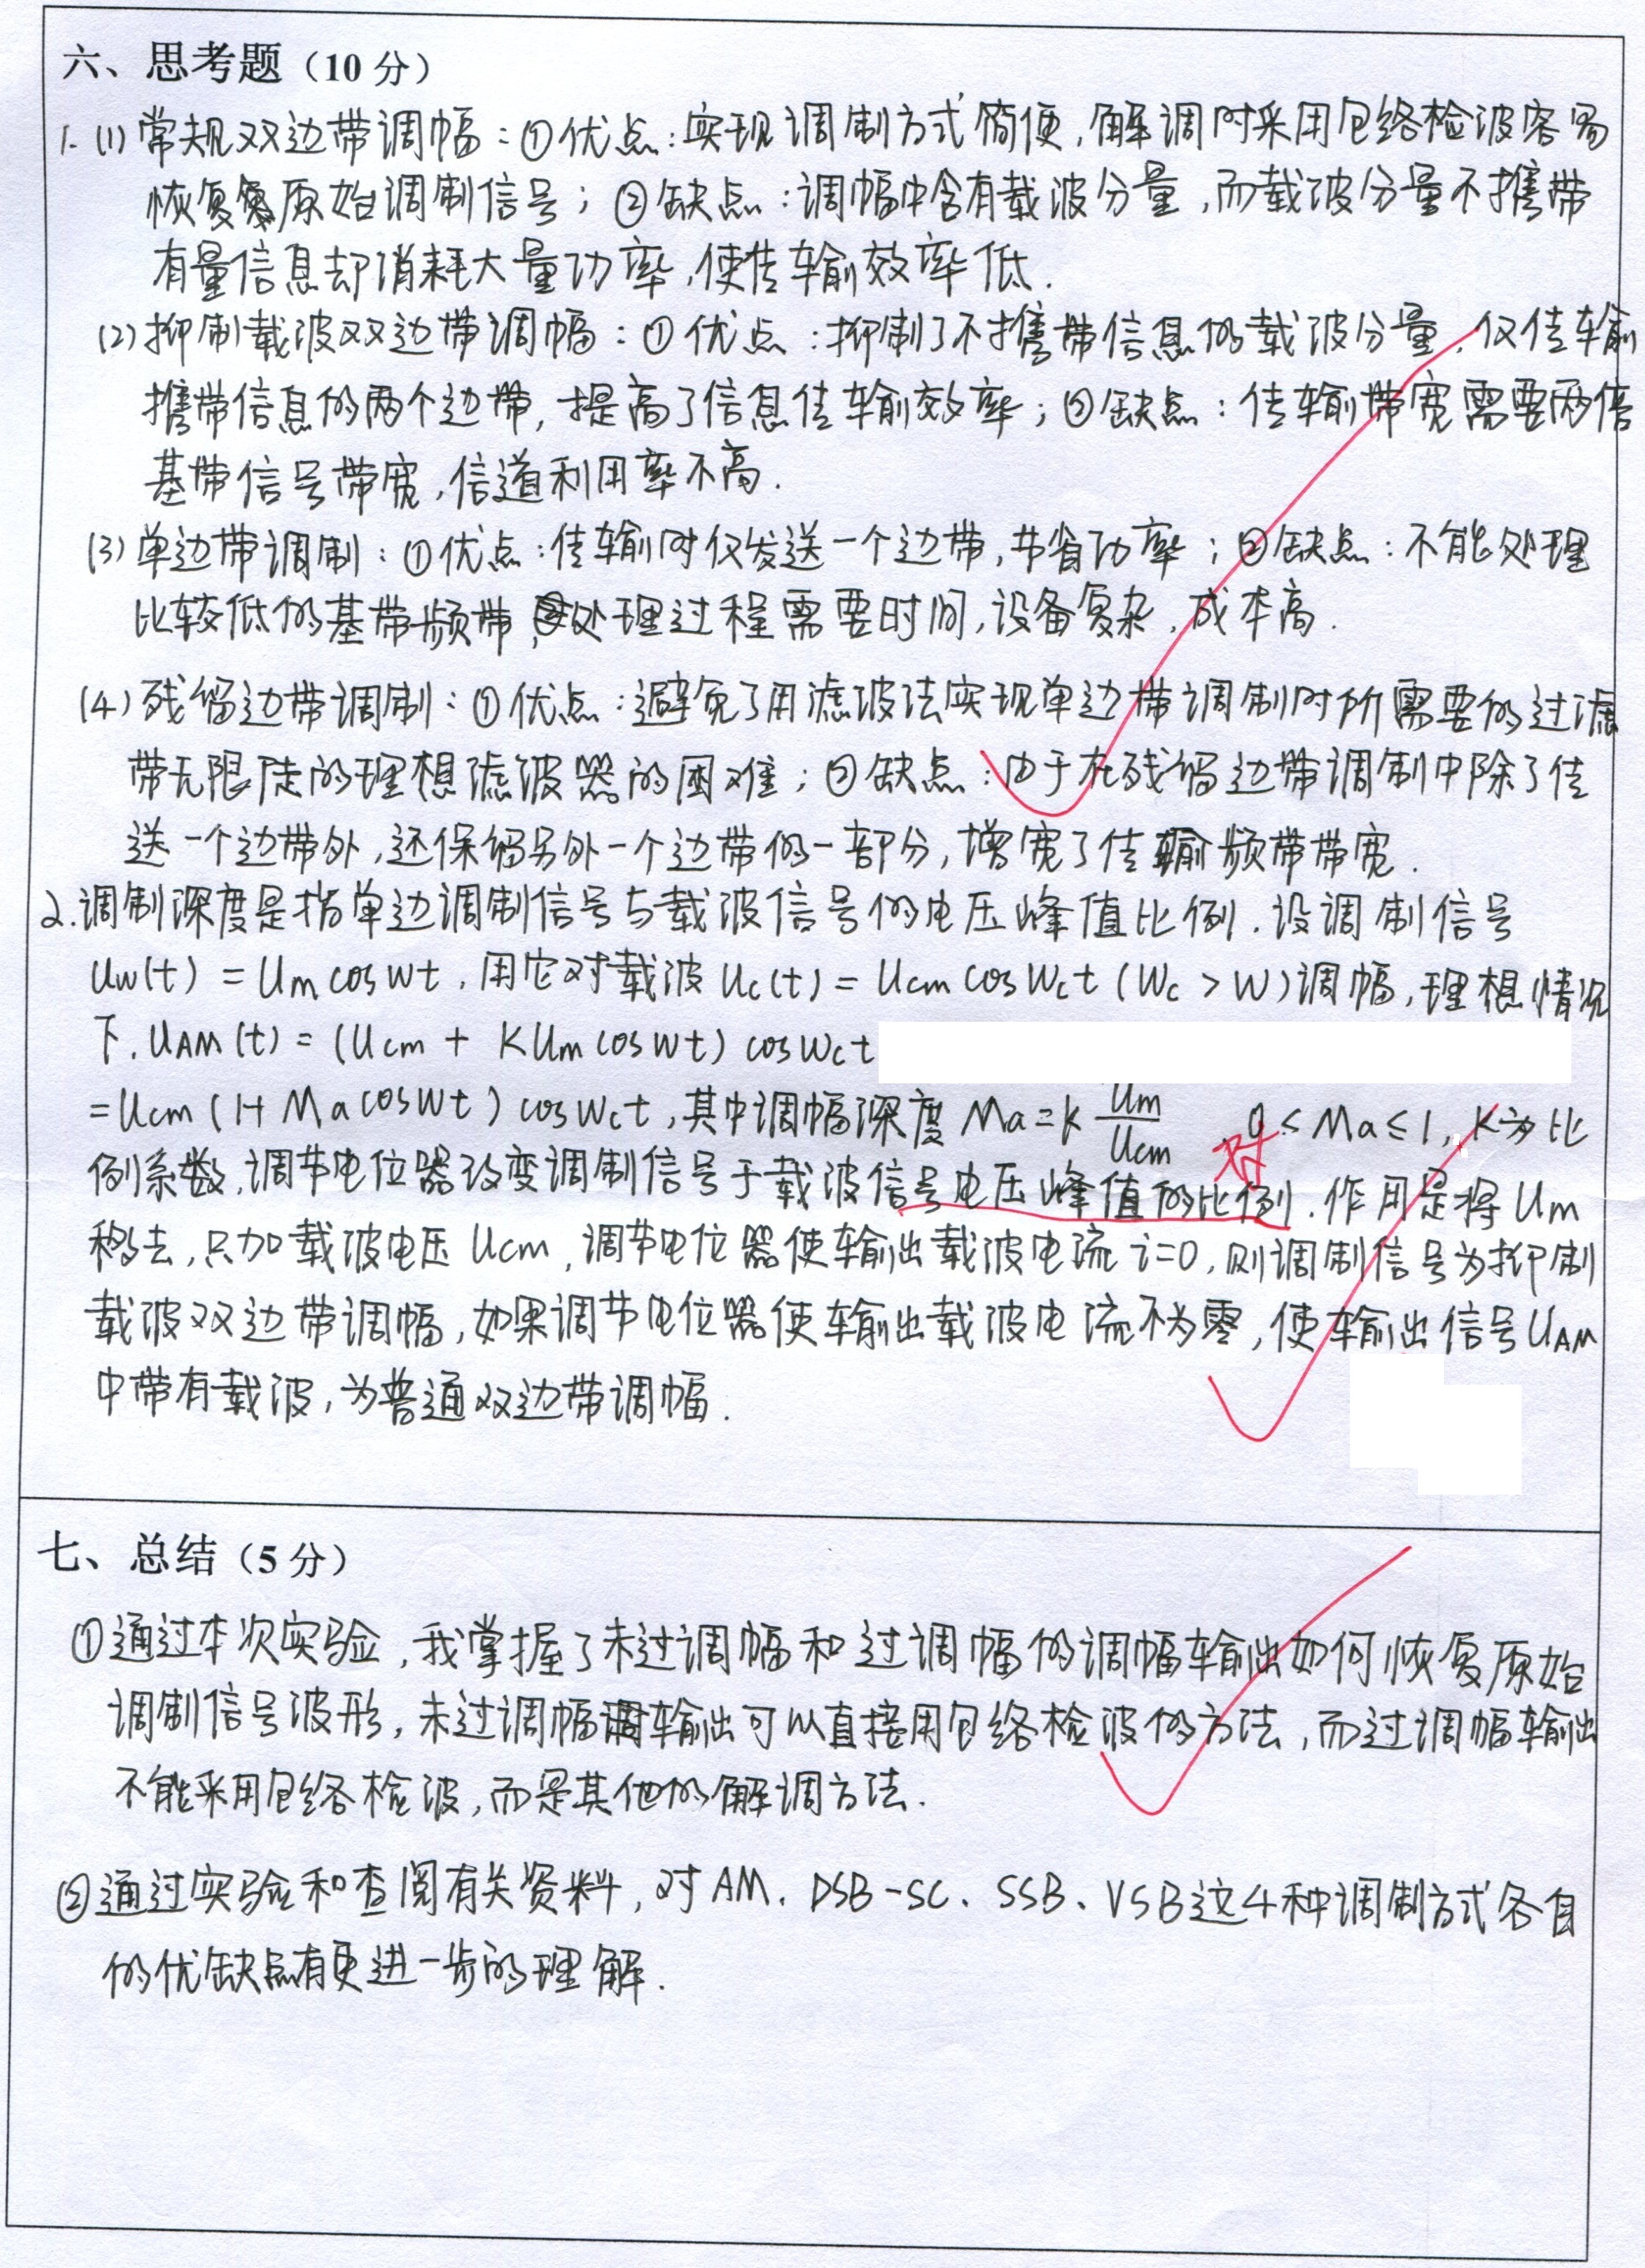 六、思考题（10 分）
1. (1) 常规双边带调幅：①优点：实现调制方式简便，解调时采用包络检波容易
恢复原始调制信号；②缺点：调幅中含有载波分量，而载波分量不携带
有量信息却消耗大量功率，使传输效率低.
(2) 抑制载波双边带调幅：①优点：抑制了不携带信息的载波分量，仅传输
携带信息的两个边带，提高了信息传输效率；②缺点：传输带宽需要两倍
基带信号带宽，信道利用率不高.
(3) 单边带调制：①优点：传输时仅发送一个边带，节省功率；②缺点：不能处理
比较低的基带频带，处理过程需要时间，设备复杂，成本高.
(4) 残留边带调制：①优点：避免了用滤波法实现单边带调制时所需要的过滤
带无限陡的理想滤波器的困难；②缺点：由于在残留边带调制中除了传
送一个边带外，还保留另外一个边带的一部分，增宽了传输频带带宽.
2. 调制深度是指单边调制信号与载波信号的电压峰值比例. 设调制信号
Uw(t) = Um cos wt，用它对载波 Uc(t) = Ucm cos Wct (Wc > W) 调幅，理想情况
下. UAM(t) = (Ucm + KUm cos wt) cos wct
= Ucm (1+ Ma cos wt) cos wct，其中调幅深度 Ma = k Um/Ucm 0 ≤ Ma ≤ 1，K为比
对
例系数，调节电位器改变调制信号于载波信号电压峰值的比例. 作用是将 Um
移去，只加载波电压 Ucm，调节电位器使输出载波电流 i=0，则调制信号为抑制
载波双边带调幅，如果调节电位器使输出载波电流不为零，使输出信号UAM
中带有载波，为普通双边带调幅.
七、总结（5 分）
①通过本次实验，我掌握了未过调幅和过调幅的调幅输出如何恢复原始
调制信号波形，未过调幅输出可以直接用包络检波的方法，而过调幅输出
不能采用包络检波，而是其他的解调方法.
②通过实验和查阅有关资料，对 AM、DSB-SC、SSB、VSB这4种调制方式各自
的优缺点有更进一步的理解.